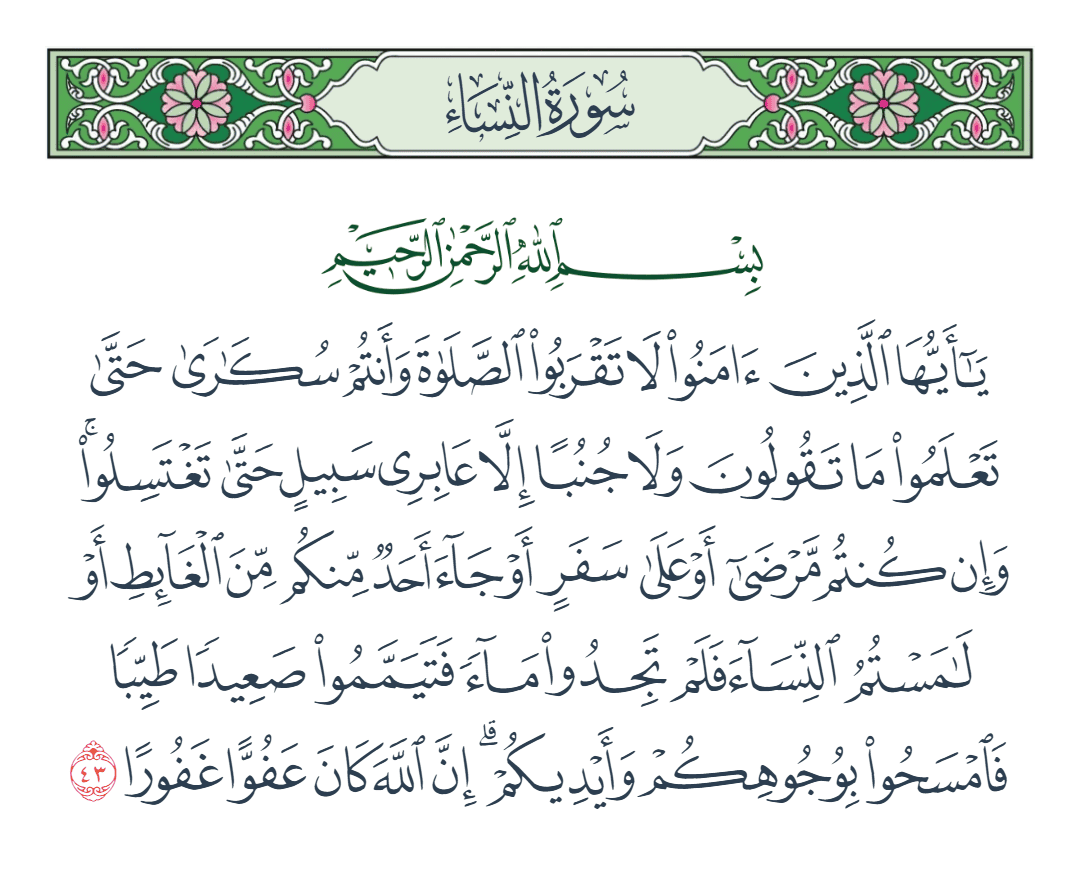 سُورَةُ النِّسَاءِ
بِسْمِ ٱللَّهِ ٱلرَّحْمَٰنِ ٱلرَّحِيمِ
يَٰٓأَيُّهَا ٱلَّذِينَ ءَامَنُوا۟ لَا تَقْرَبُوا۟ ٱلصَّلَوٰةَ وَأَنتُمْ سُكَٰرَىٰ حَتَّىٰ
تَعْلَمُوا۟ مَا تَقُولُونَ وَلَا جُنُبًا إِلَّا عَابِرِى سَبِيلٍ حَتَّىٰ تَغْتَسِلُوا۟ ۚ
وَإِن كُنتُم مَّرْضَىٰٓ أَوْ عَلَىٰ سَفَرٍ أَوْ جَآءَ أَحَدٌ مِّنكُم مِّنَ ٱلْغَآئِطِ أَوْ
لَٰمَسْتُمُ ٱلنِّسَآءَ فَلَمْ تَجِدُوا۟ مَآءً فَتَيَمَّمُوا۟ صَعِيدًا طَيِّبًا
فَٱمْسَحُوا۟ بِوُجُوهِكُمْ وَأَيْدِيكُمْ ۗ إِنَّ ٱللَّهَ كَانَ عَفُوًّا غَفُورًا ٤٣